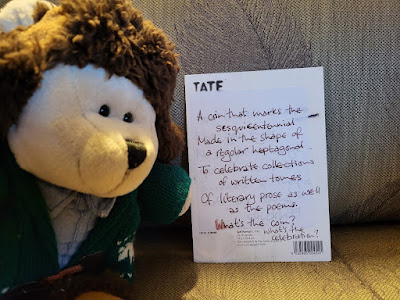 TATE
A coin that marks the
sesquicentennial
Made in the shape of
a regular heptagonal
To celebrate collections
of written tomes
Of literary prose as well
as the poems.
What's the coin?
What's the
celebration?